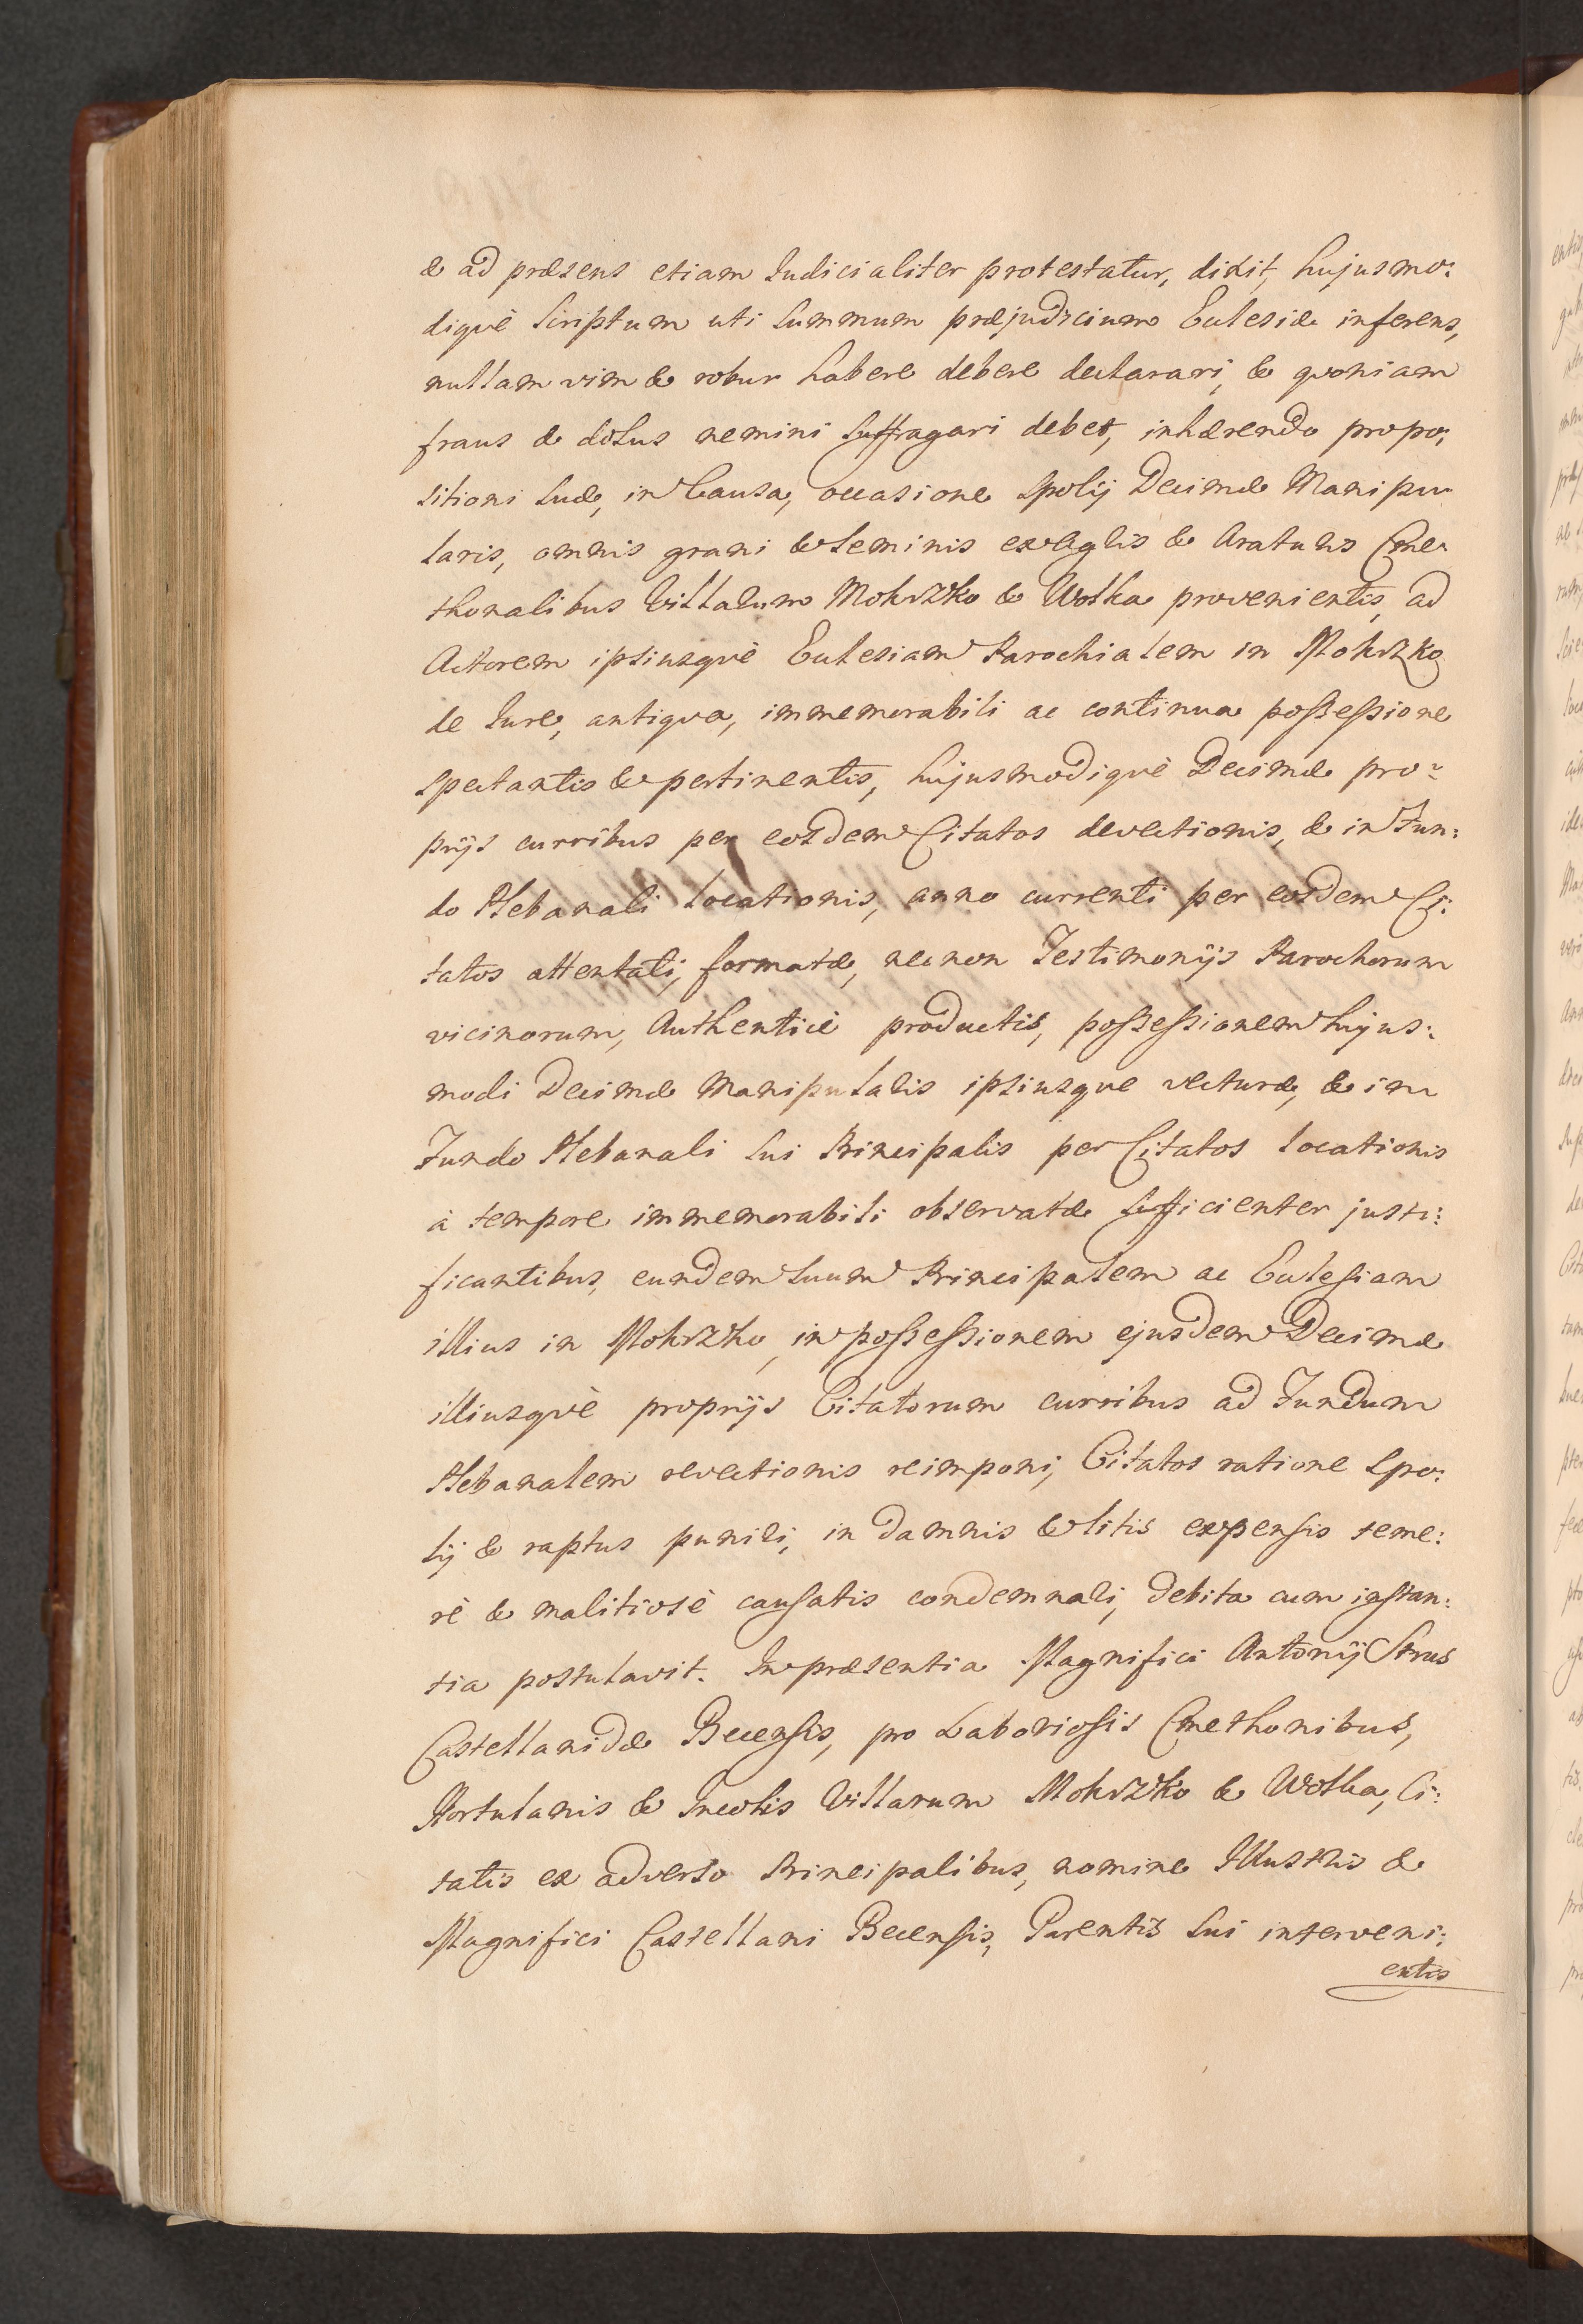 & ad præsens etiam Judicialiter protestatur, dixit, hujusmo:
diquè Scriptum uti summum præjudicium Ecclesiæ inferens,
nullam vim & robur habere debere declarari, & quoniam
fraus & dolus nemini suffragari debet, inhærendo propo:
sitioni suæ, in Causa, occasione Spolij Decimæ Manipu
laris, omnis grani & seminis ex Agris & Araturis Cme
thonalibus Villarum Mokrzko & Wolka provenientis, ad
Actorem ipsiusquè Ecclesiam Parochialem in Mokrzko
de Jure, antiqua, immemorabili ac continua possessione
spectantis & pertinentis, hujusmodiquè Decimæ pro:
prijs curribus per eosdem Citatos devectionis, & in Fun:
do Plebanali locationis, anno currenti per eosdem Ci:
tatos attentati, formatæ, necnon Testimonijs Parochorum
vicinorum, Authenticè productis, possessionem hujus:
modi Decimæ Manipularis ipsiusque vecturæ, & in
Fundo Plebanali sui Principalis per Citatos locationis
à tempore immemorabili observatæ sufficienter justi:
ficantibus, eundem suum Principalem ac Ecclesiam
illius in Mokrzko, in possessionem ejusdem Decimæ
illiusquè proprijs Citatorum curribus ad Fundum
Plebanalem revectionis reimponi, Citatos ratione Spo:
lij & raptus puniri, in damnis & litis expensis teme:
rè & malitiosè causatis condemnari, debita cum instan:
tia postulavit. In præsentia Magnifici Antonij Strus
Castellanidæ Becensis, pro Laboriosis Cmethonibus,
Hortulanis & Incolis Villarum Mokrzko & Wolka, Ci:
tatis ex adverso Principalibus, nomine Illustris &
Magnifici Castellani Becensis, Parentis sui interveni:
entis